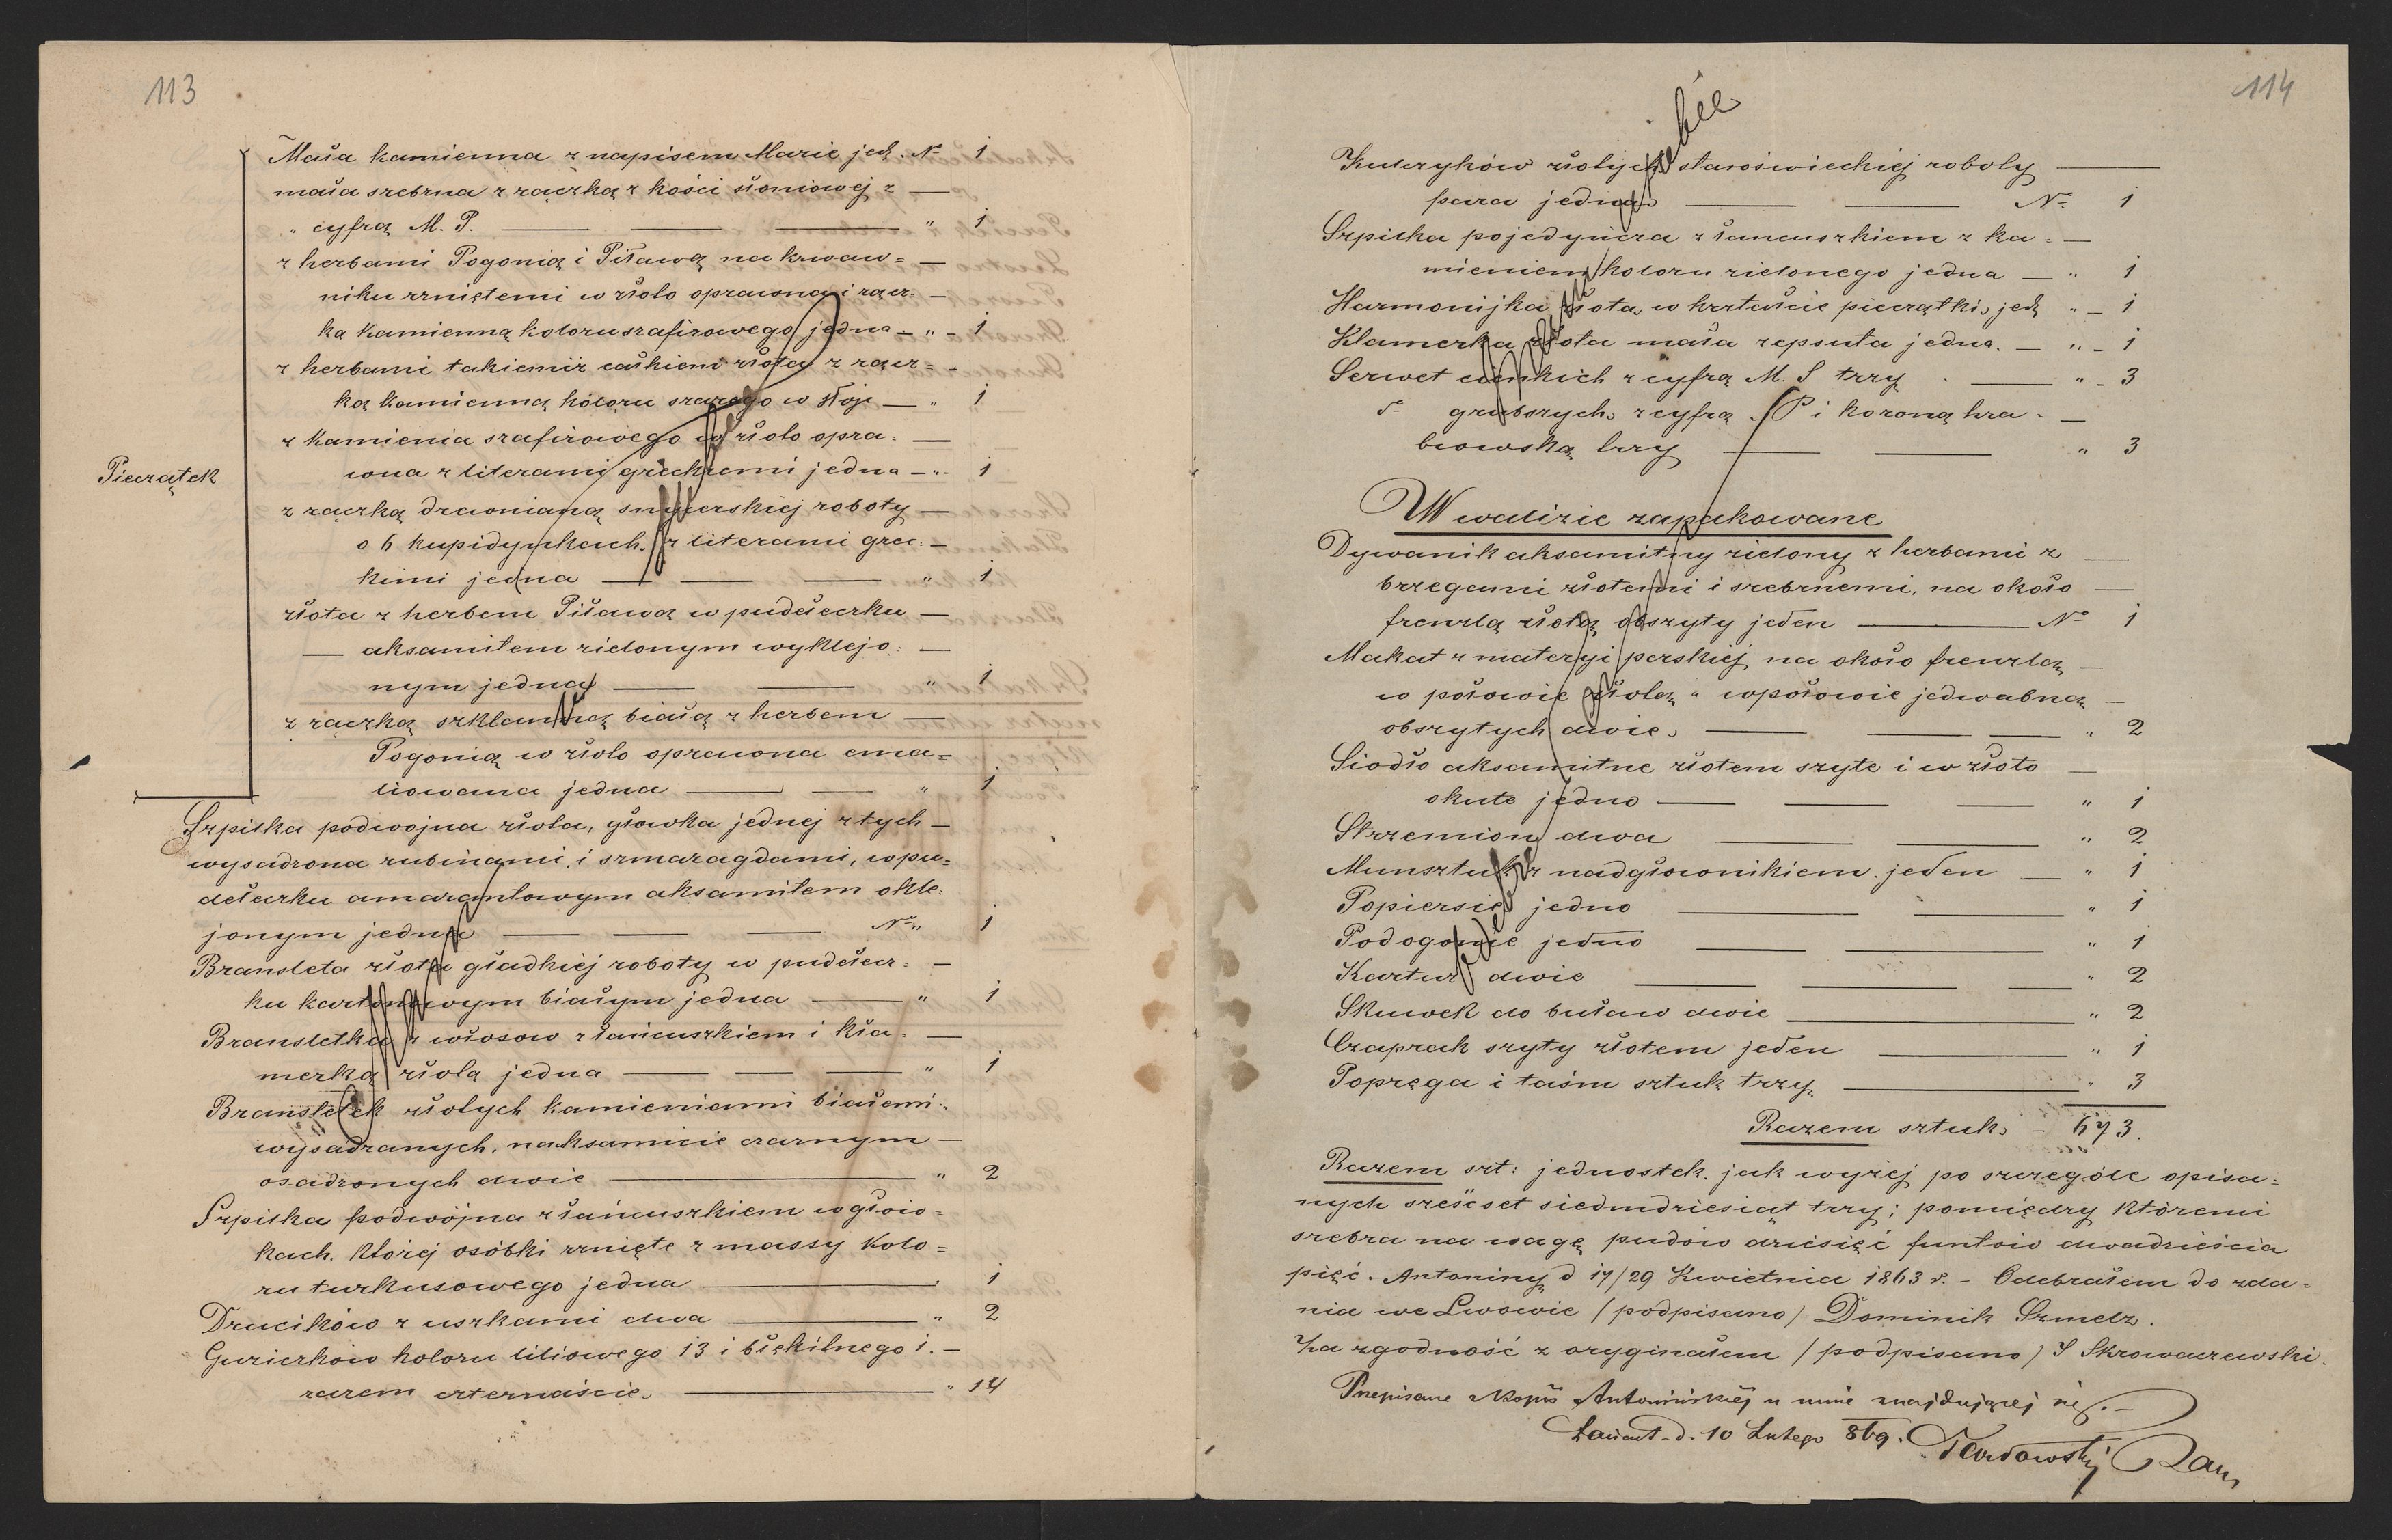 113
Mała kamienna z napisem Marie jed. N° 1
mała srebrna z rączką z kości słoniowej z —
" cyfrą M. P. — — — " 1
z herbami Pogonią i Piławą na krwaw= —
niku rzniętemi w złoto oprawna i rącz= —
ka kamienną koloru szafirowego jedna — " — 1
z herbami takiemiż całkiem złota z rącz= —
ką kamienną koloru szarego w — " 1
z kamienia szafirowego w złoto opra= —
wna z literami greckiemi jedna — " 1
Pieczątek
z rączką drewnianą snycerskiej roboty —
o 6 kupidynkach z literami grec= —
kimi jedna — — — " 1
złota z herbem Piławą w pudełeczku —
— aksamitem zielonym wyklejo= —
nym jedna — — " 1
z rączką szklanną białą z herbem —
Pogonią w złoto oprawna ema=
liowana jedna — — " 1
Szpilka podwojna złota, głowka jednej z tych —
wysadzona rubinami i szmaragdami, w pu=
dełeczku amarantowym aksamitem okle=
jonym jedna — — — N° " 1
Bransleta złota gładkiej roboty w pudełecz= —
ku kartonowym białym jedna — " 1
Bransletka z włosow z łańcuszkiem i kla= —
merką złotą jedna — — — " 1
Bransletek złotych kamieniami białemi =
wysadzanych, na aksamicie czarnym —
osadzonych dwie — " 2
Szpilka podwójna z łańcuszkiem w głow=
kach, ktorej osóbki rznięte z massy kolo=
ru turkusowego jedna — 1
Drucików z uszkami dwa — " 2
Guziczków koloru liliowego 13 i błękitnego 1. —
razem czternaście — " 14
114
Kulczyków złotych staroświeckiej roboty —
para jedna — — N° 1
Szpilka pojedyńcza z łańcuszkiem z ka= —
mieniem koloru zielonego jedna — " 1
Harmonijka złota w kształcie pieczątki, jed " — 1
Klamerka złota mała zepsuta jedna. — " — 1
Serwet cienkich z cyfrą M. S trzy — " — 3
d° grubszych z cyfrą P i koroną hra= —
biowską trzy — — " 3
W walizie zapakowane
Dywanik aksamitny zielony z herbami z —
brzegami złotemi i srebrnemi, na około —
frenzlą złotą obszyty jeden — N° 1
Makat z materyi perskiej na około frenzlą —
w połowie złotą " w połowie jedwabną —
obszytych dwie — — — " 2
Siodło aksamitne złotem szyte i w złoto —
okute jedno — — — " 1
Strzemion dwa — — " 2
Munsztuk z nadgłownikiem jeden — " 1
Popiersie jedno — — " 1
Podogonie jedno — — " 1
Kartur dwie — — — " 2
Skuwek do buław dwie — " 2
Czaprak szyty złotem jeden — " 1
Popręga i taśm sztuk trzy — " 3
Razem sztuk — 673.
Razem szt: jednostek jak wyżej po szczególe opisa=
nych sześćset siedmdziesiąt trzy; pomiędzy któremi
srebra na wagę pudów dziesięć funtow dwadzieścia
pięć. Antoniny d 17/29 Kwietnia 1863 r. — Odebrałem do zda=
nia we Lwowie /podpisano/ Dominik Szmelz.
Za zgodność z oryginałem /podpisano/ J Skrowaczewski.
Przepisane z kopii Antonińskiéj u mnie znajdującej się. —
Łańcut d. 10 Lutego 869.